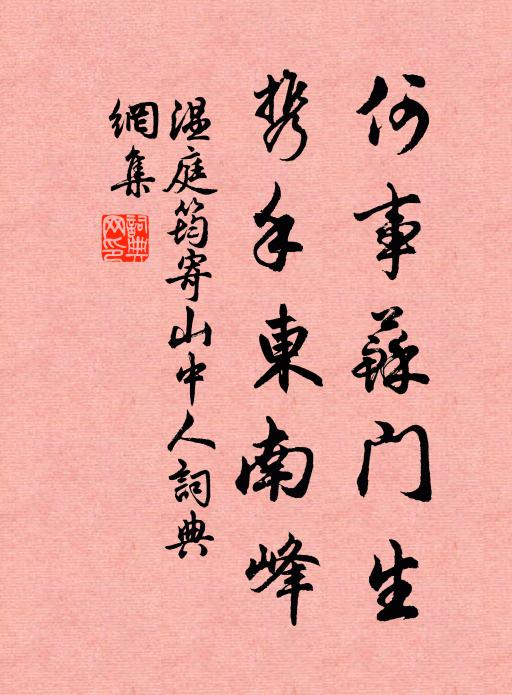 何事蘇门生
携手東南峰
温庭筠寄山中人詞典
網集
詞典
网印